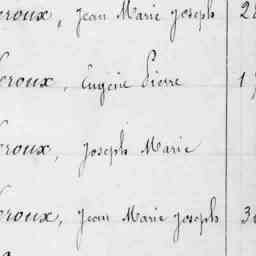 eroux, Jean Marie Joseph 2
eroux, Eugène Pierre 1
eroux, Joseph Marie
eroux, Jean Marie Joseph 3